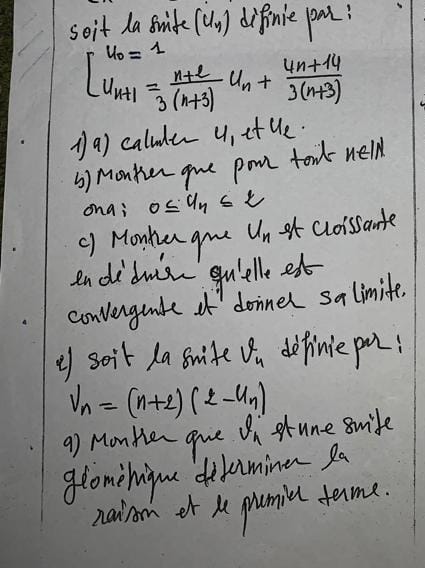 soit la suite (Un) définie par :
U0 = 1
Un+1 = n+2/3(n+3) Un + 4n+14/3(n+3)
1) a) calculer U1 et U2.
b) Montrer que pour tout n∈IN
ona : 0 ≤ Un ≤ 2
c) Montrer que Un est croissante
en déduire qu'elle est
convergente et donner sa limite.
2) soit la suite Vn définie par :
Vn = (n+2)(2-Un)
a) Montrer que Vn est une suite
géométrique déterminer la
raison et le premier terme.